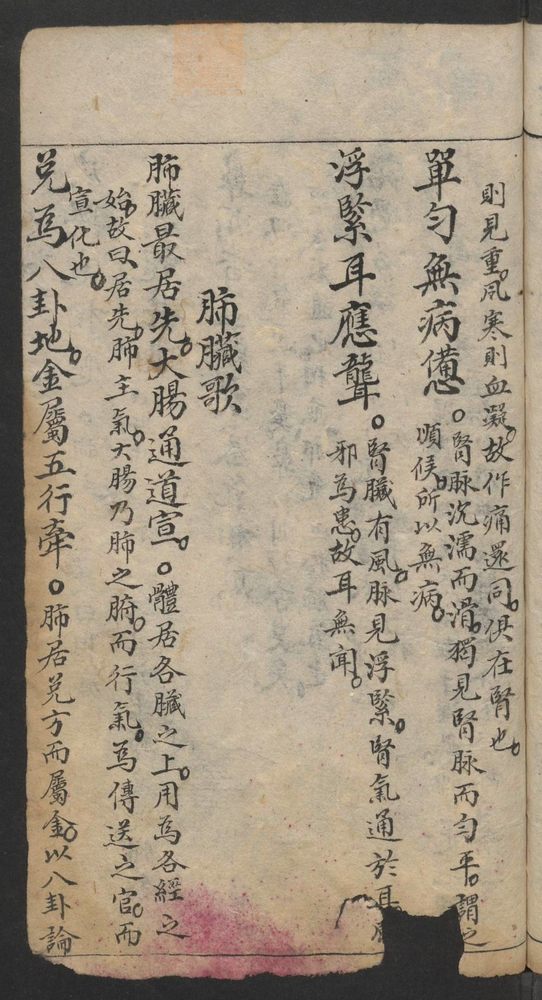 則見重。風寒則血凝。故作痛還同。俱在腎也。
單勻無病憊。腎脉沉濡而滑。獨見腎脉而勻平。謂之
順候。所以無病。
浮緊耳應聾。腎臟有風。脉見浮緊。腎氣通於耳
邪為患。故耳無聞。
肺臟歌
肺臟最居先。大腸通道宣。體居各臟之上。用為各經之
始。故曰居先。肺主氣。大腸乃肺之腑。而行氣。為傳送之官。而
宣化也。
兌為八卦地。金屬五行牽。肺居兌方而屬金。以八卦論